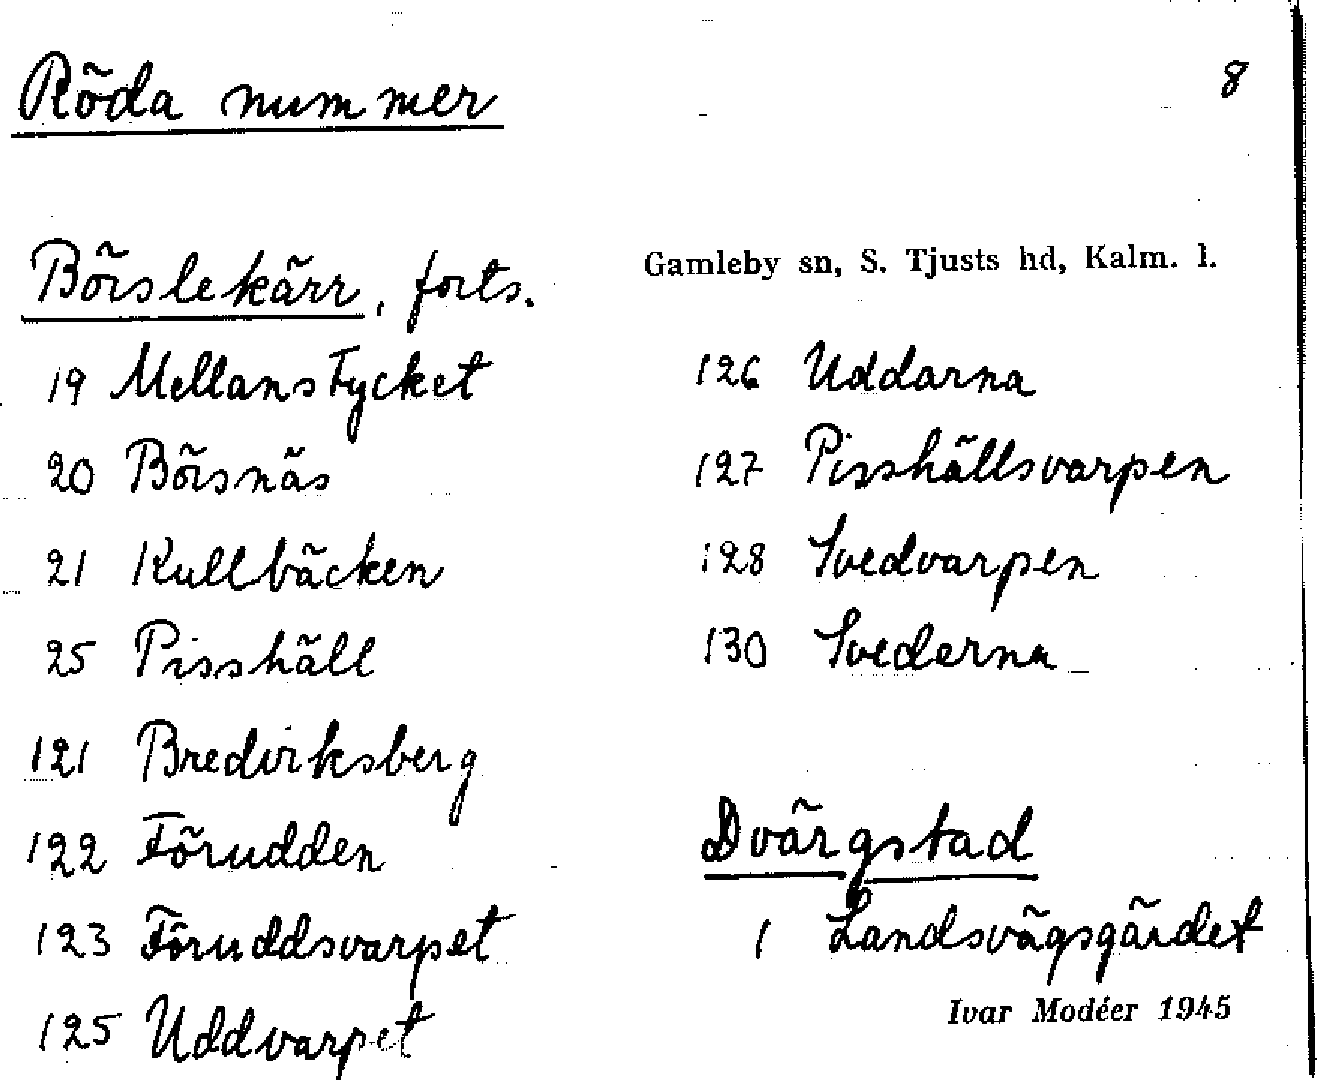 Röda nummer
8
Börslekärr, forts.
Gamleby sn, S. Tjusts hd, Kalm. l.
19 Mellanstycket
20 Börsnäs
21 Kullbäcken
25 Pisshäll
121 Bredviksberg
122 Förudden
123 Föruddsvarpet
125 Uddvarpet
126 Uddarna
127 Pisshällsvarpen
128 Svedvarpen
130 Svederna
Dvärgstad
1 Landsvägsgärdet
Ivar Modéer 1945